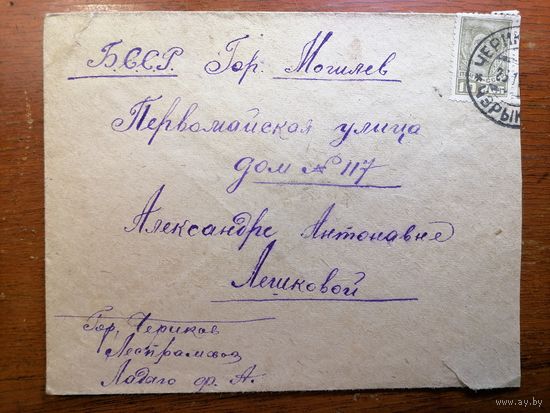 Б.С.С.Р. Гор. Могилев
Первомайская улица
дом № 117
Александре Антонавне
Лешковой
Гор. Чериков
Лестрамхоз
Ладаго ф. А.
ЧЕРИК
www.ay.by